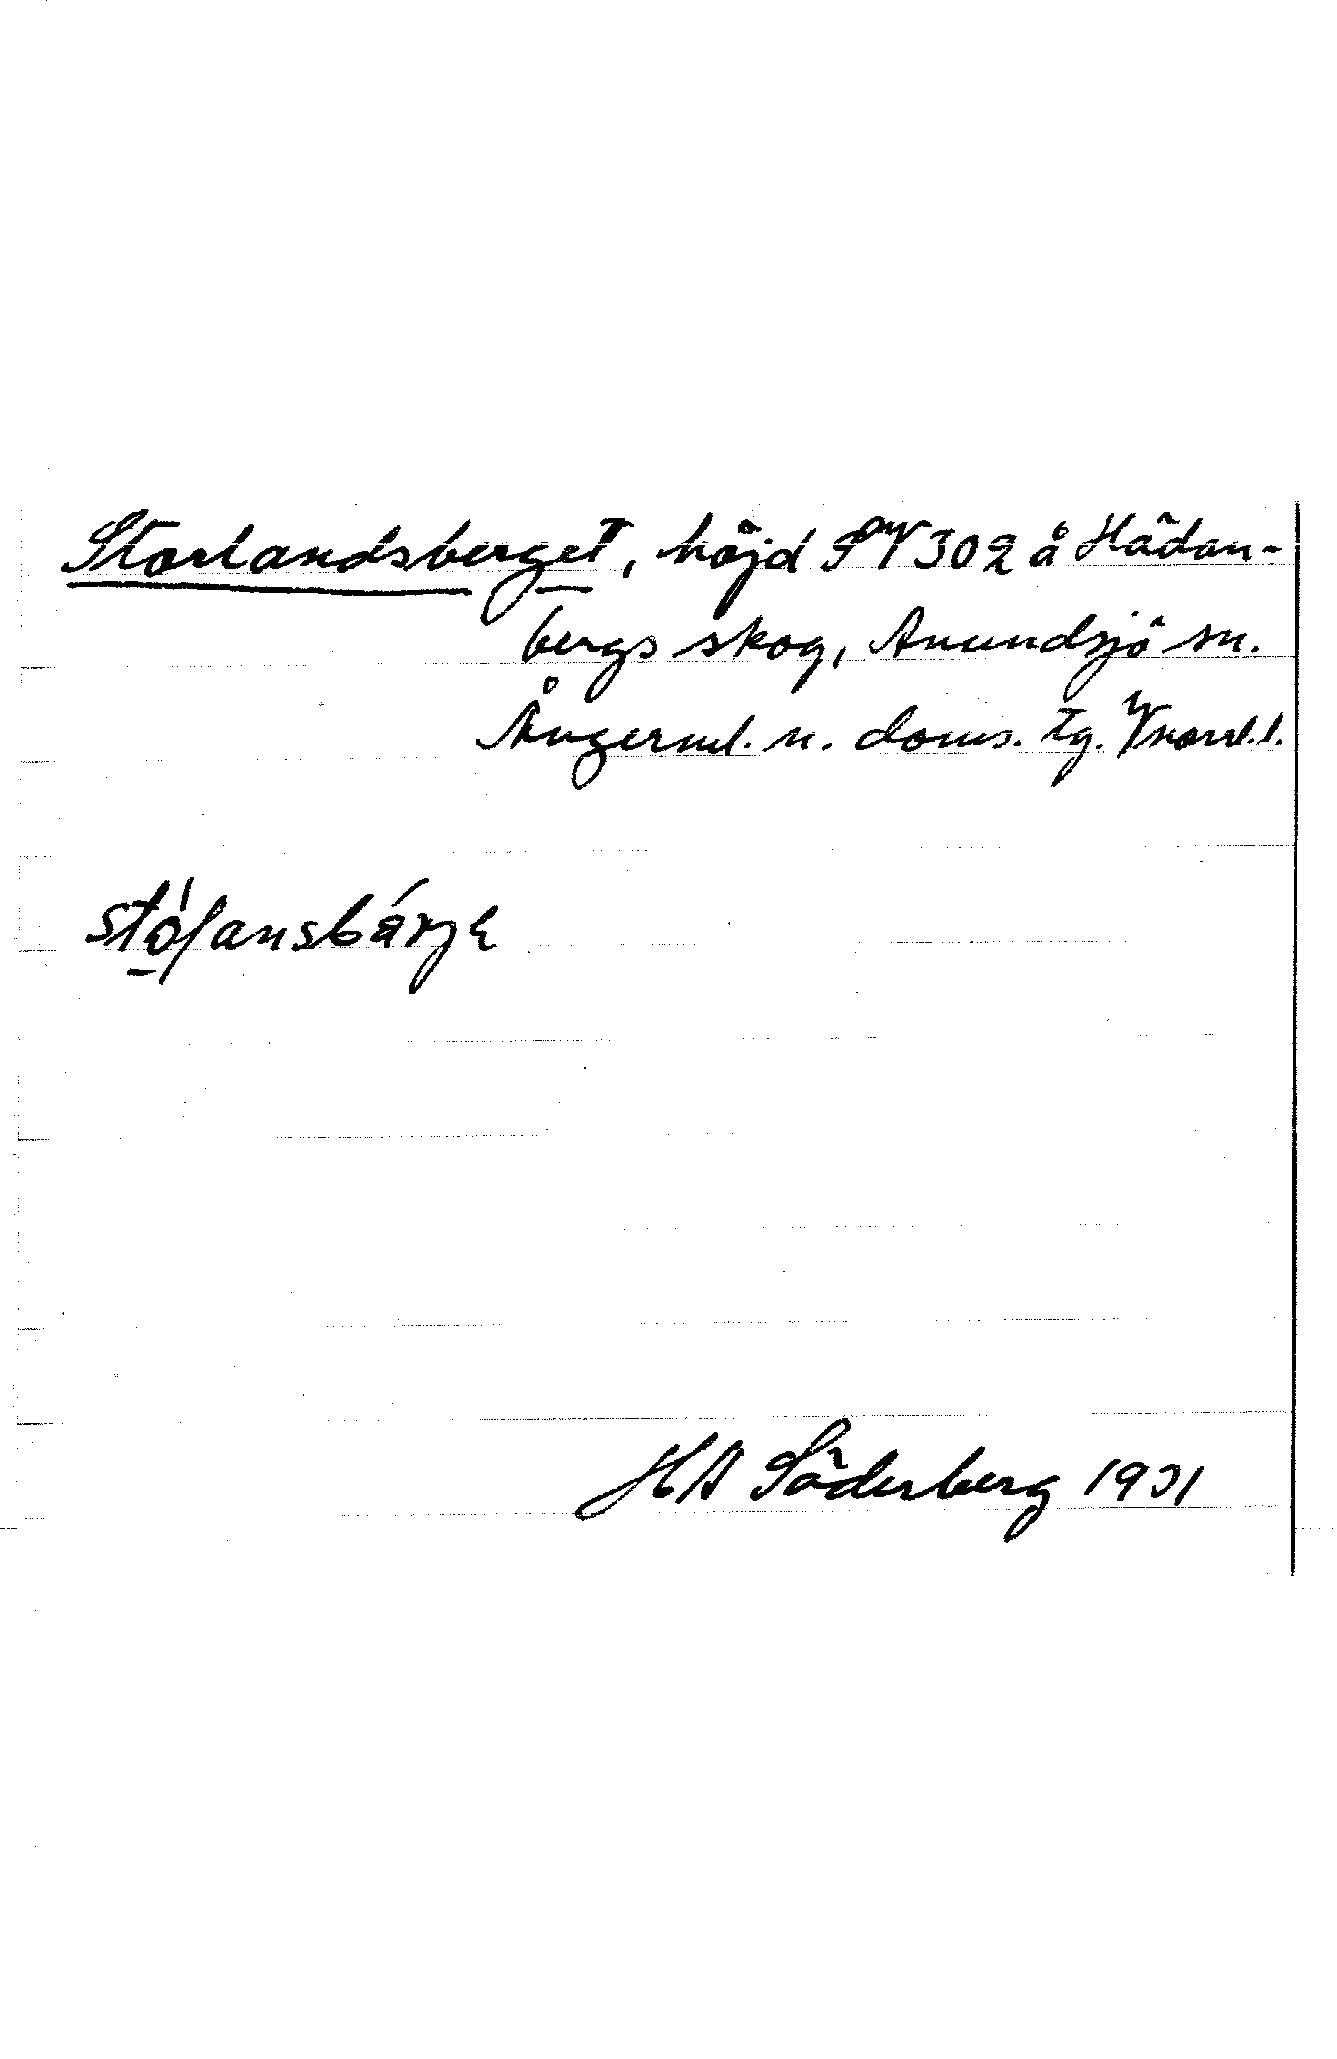 Storlandsberget, höjd SOV 302 å Hädan-
bergs skog, Anundsjö sn.
Ångerml. n. doms. tg. Vnorrl. l.
HA Söderberg 1931